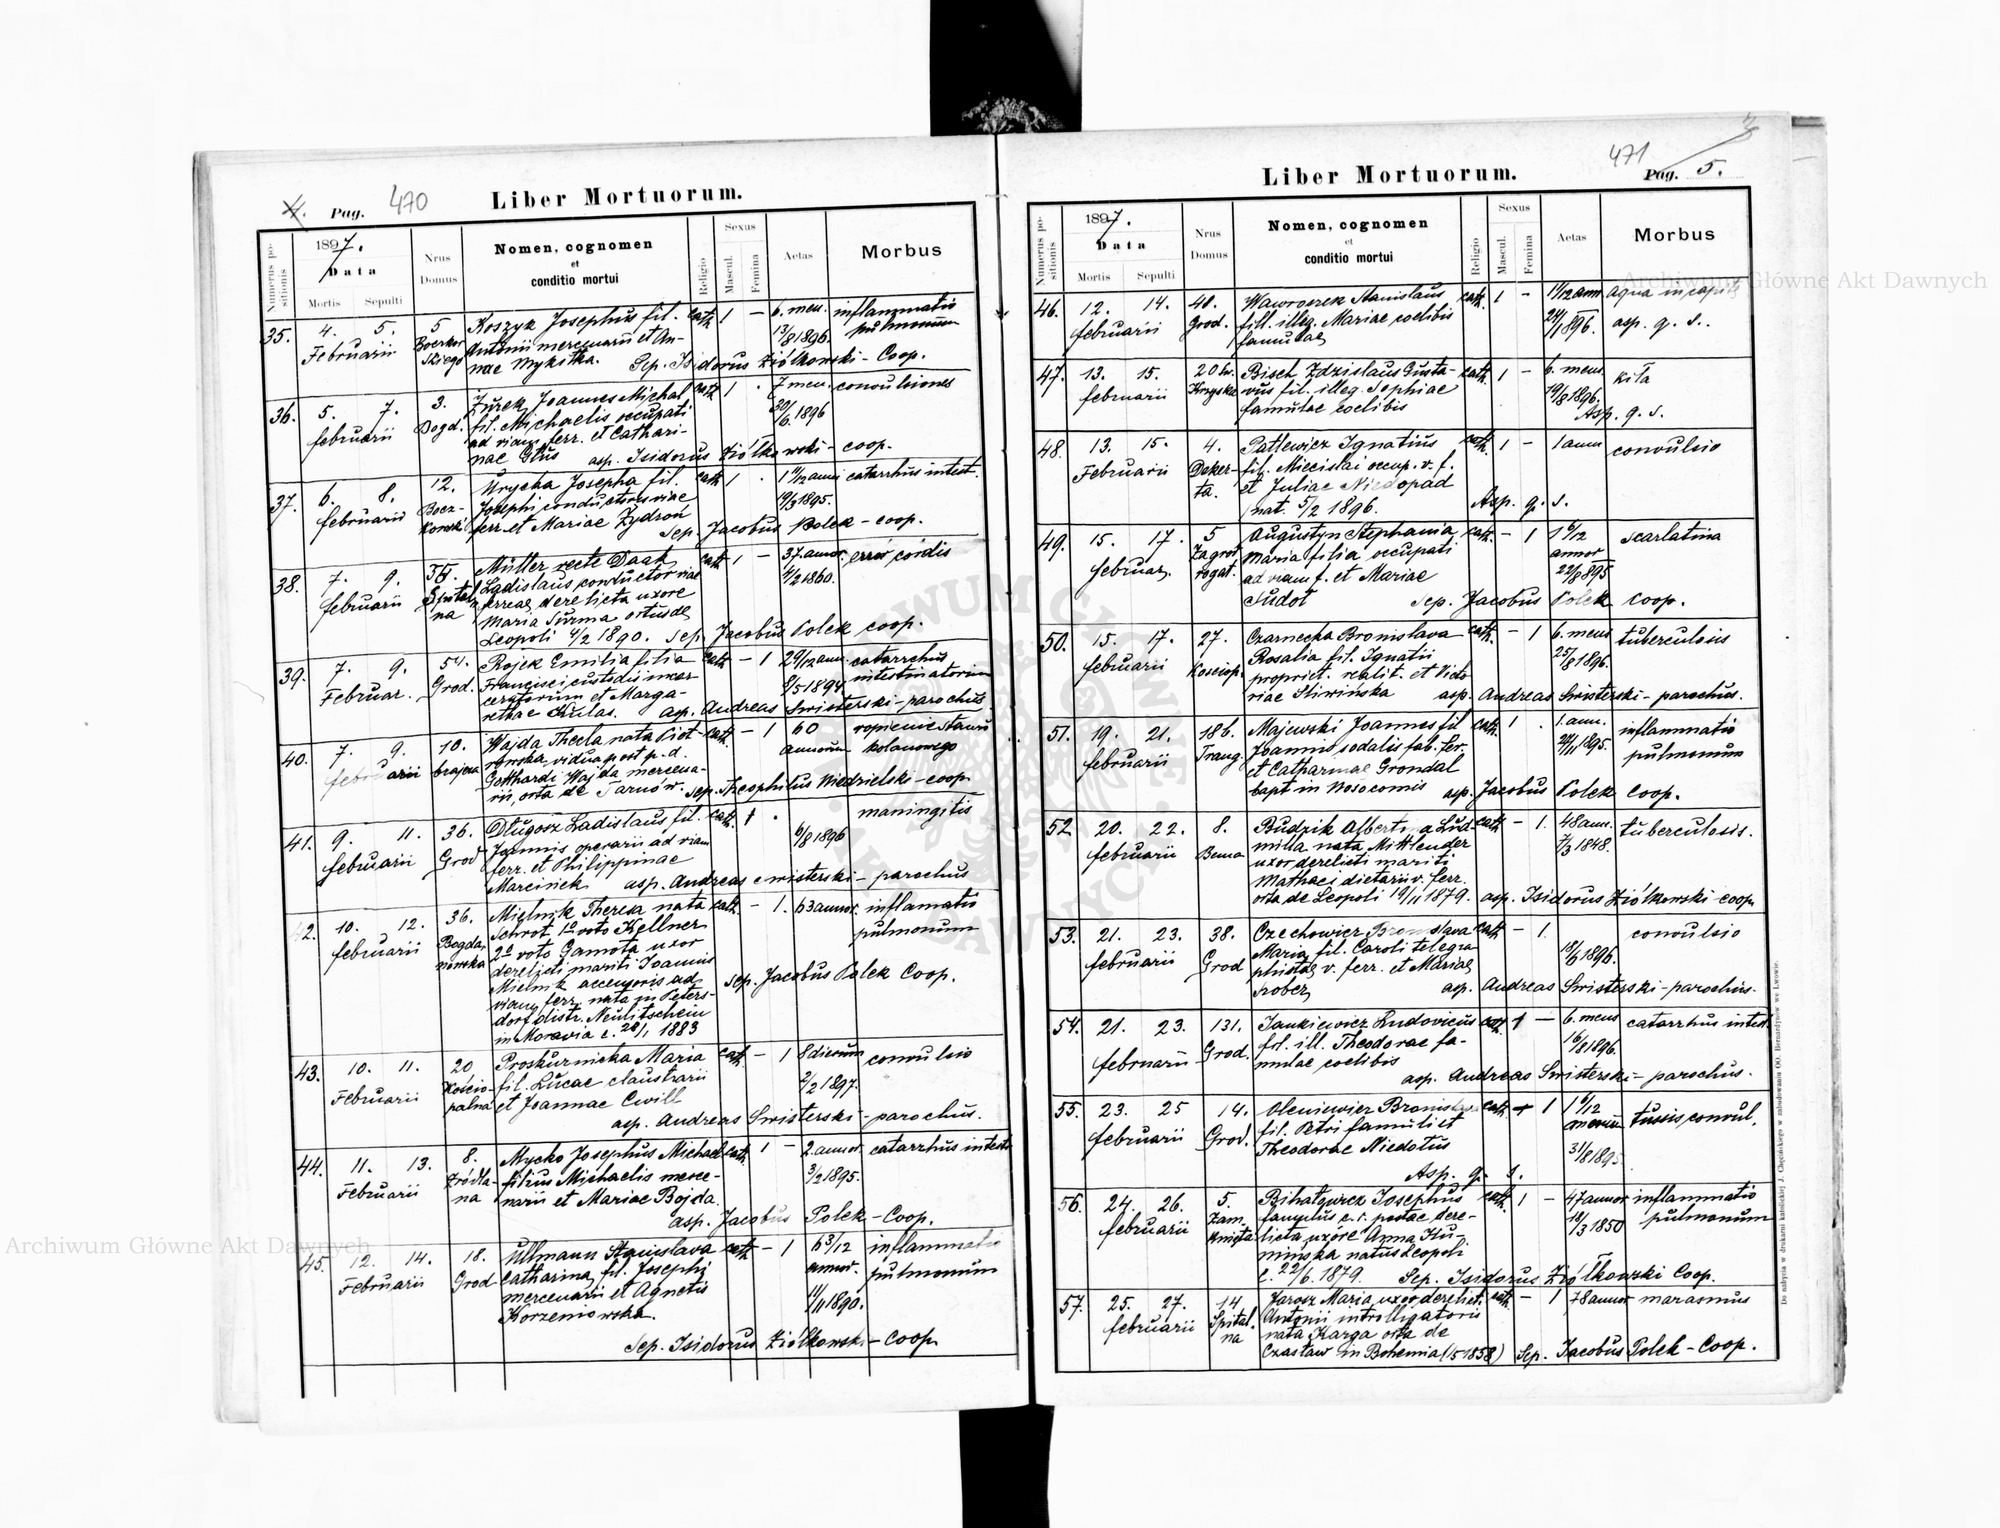 4. Pag. 470 Liber Mortuorum.
Numerus positionis
1897.
Data
Mortis Sepulti
Nrus Domus
Nomen, cognomen
et
conditio mortui
Religio
Sexus
Mascul. Femina
Aetas
Morbus
35. 4. 5. Februarii 5
Koszyk Josephus fil. cath. 1 – 6. men. inflammatio
Antonii mercenarii et An- 13/8 1896. pulmonum
nae Mykitka. Sep. Isidorus Ziółkowski – Coop.
36. 5. 7. februarii 3. Bogd.
Żurek Joannes Michal cath. 1 . 7 men. convulsiones
fil. Michaelis occupati 30/6. 1896
ad viam ferr. et Cathari-
nae Głus asp. Isidorus Ziółkowski – coop.
37. 6. 8. februarii 12. Bocz-
kowski
Urycha Josepha fil. cath. 1 . 1 11/12 anni catarrhus intest.
Josephi conductoris viae 19/3 1895.
ferr. et Mariae Żydroń
Sep. Jacobus Polek – coop.
38. 7. 9. februarii Szpital-
na
Müller recte Daak cath. 1 – 37. annor. error cordis
Ladislaus conductor viae 4/2 1860.
ferreae, derelicta uxore
Maria Surma ortus de
Leopoli 4/2 1890. Sep. Jacobus Polek coop.
39. 7. 9. Februar. 54. Grod.
Rojek Emilia filia cath. – 1 2 9/12 ann. catarrhus
Francisci custodis incar- 8/5 1894. intestinatorium
ceratorum et Marga-
rethae Kulas. asp. Andreas Swisterski – parochus.
40. 7. 9. februarii 10. brajera
Wajda Thecla nata Piot- cath. – 1 60 ropienie stawu
rowska, vidua post p. d. annorum kolanowego
Gotthardi Wajda mercena-
rii, orta de Tarnów. Sep. Theophilus Niedzielski – coop.
41. 9. 11. februarii 36. Grod
Długosz Ladislaus fil. cath. 1 . maningitis
Joannis operarii ad viam 6/8 1896
ferr. et Philippinae
Marcinek asp. Andreas Swisterski – parochus
42. 10. 12. februarii 36. Bogda-
nowska
Mielnik Theresa nata cath. – 1. 63 annor. inflamatio
Schrot 1o voto Kellner pulmonum
2o voto Gamota uxor
derelicti mariti Joannis
Mielnik accensoris ad Sep. Jacobus Polek Coop.
viam ferr. nata in Peters-
dorf distr. Neulitschein
in Moravia c. 28/1. 1883
43. 10. 11. Februarii 20 Kościo-
palna
Proskurnicka Maria cath. – 1 8 dierum convulsio
fil. Lucae claustrarii 2/2 1897.
et Joannae Cwill
asp. Andreas Swisterski – parochus.
44. 11. 13. Februarii 8. Źródla-
na
Mycko Josephus Michael cath. 1 – 2. annor. catarrhus intest.
filius Michaelis merce- 3/2 1895.
narii et Mariae Bojda.
asp. Jacobus Polek – Coop.
45. 12. 14. Februarii 18. Grod
Ullmann Stanislava cath. – 1 6 3/12 inflammatio
Catharina, fil. Josephi annor. pulmonum
mercenarii et Agnetis 11/11 1890.
Korzeniowska.
Sep. Isidorus Ziółkowski – Coop.
Liber Mortuorum. 471 Pag. 5.
Numerus positionis
1897.
Data
Mortis Sepulti
Nrus Domus
Nomen, cognomen
et
conditio mortui
Religio
Sexus
Mascul. Femina
Aetas
Morbus
46. 12. 14. februarii 48. Grod.
Wawrorzek Stanislaus cath. 1 – 1 1/12 ann. aqua in capite
fill. illeg. Mariae coelibis asp. q. s.
famulae
47. 13. 15. februarii
Bisch Zdzislaus Gusta- cath. 1 – 6. mens. kiła
vus fil. illeg. Sophiae 19/8 1896.
famulae coelibis Asp. q. s.
48. 13. 15. Februarii 4. Deker-
ta.
Patlewicz Ignatius cath. 1 – 1 ann. convulsio
fil. Miecislai occup. v. f.
et Juliae Niedopad
nat. 5/2 1896. Asp. q. s.
49. 15. 17. februar. 5
Augustyn Stephania cath. – 1 1 6/12 scarlatina
Maria filia occupati annor
ad viam f. et Mariae 22/8 895
Sudoł Sep. Jacobus Polek coop.
50. 15. 17. februarii 27. Kościop.
Czarnecka Bronislava cath. – 1 6. mens tuberculosis
Rosalia fil. Ignatii 25/8 1896.
propriet. realit. et Victo
riae Śliwińska asp. Andreas Swisterski – parochus.
51. 19. 21. februarii 18b. Traug.
Majewski Joannes fil cath. 1 . 1. ann. inflammatio
Joannis sodalis fab. fer. 24/11 1895. pulmonum
et Catharinae Grondal
bapt in Nosocomis asp. Jacobus Polek Coop.
52. 20. 22. februarii 8. Bema
Budzik Alberti a Lud- cath. – 1. 48 ann. tuberculosis.
milla nata Mittlender 7/3 1848.
uxor derelicti mariti
Mathaei dietarii v. ferr.
orta de Leopoli 19/11 1879. asp. Isidorus Ziółkowski – coop.
53. 21. 23. februarii 38. Grod
Czechowicz Bronislava cath. – 1. convulsio
Maria, fil. Caroli telegra 18/9 1896.
phistae v. ferr. et Mariae
Srobez asp. Andreas Swisterski – parochus.
54. 21. 23. februarii 131. Grod.
Jankiewicz Ludovicus cath. 1 – 6. mens catarrhus intest.
fil. ill. Theodorae fa- 16/8 1896.
mulae coelibis
asp. Andreas Swisterski – parochus.
55. 23. 25 februarii 14. Grod.
Oleniewicz Bronislava cath. 1 1 6/12 tussis convul.
fil. Petri famuli et
Theodorae Niedotus 31/8 1895
Asp. q. s.
56. 24. 26. februarii 5. Zam-
knięta
Bihatowicz Josephus cath. 1 – 47 annor inflammatio
famulus c. r. postae dere- 18/3 1850 pulmonum
licta uxore Anna Hu-
mińska natus Leopoli
c. 22/6. 1879. Sep. Isidorus Ziółkowski Coop.
57. 25. 27. februarii 14 Spital-
na
Jarosz Maria uxor derelict. cath. – 1 78 annor marasmus
Antonii introlligatoris
nata Karga orta de
Czasław in Bohemia (15 1858) Sep. Jacobus Polek – Coop.
Do nabycia w drukarni katolickiej J. Chęcińskiego w zabudowaniu OO. Bernardynów we Lwowie.
Archiwum Główne Akt Dawnych
Archiwum Główne Akt Dawnych
ARCHIWUM GŁÓWNE AKT DAWNYCH